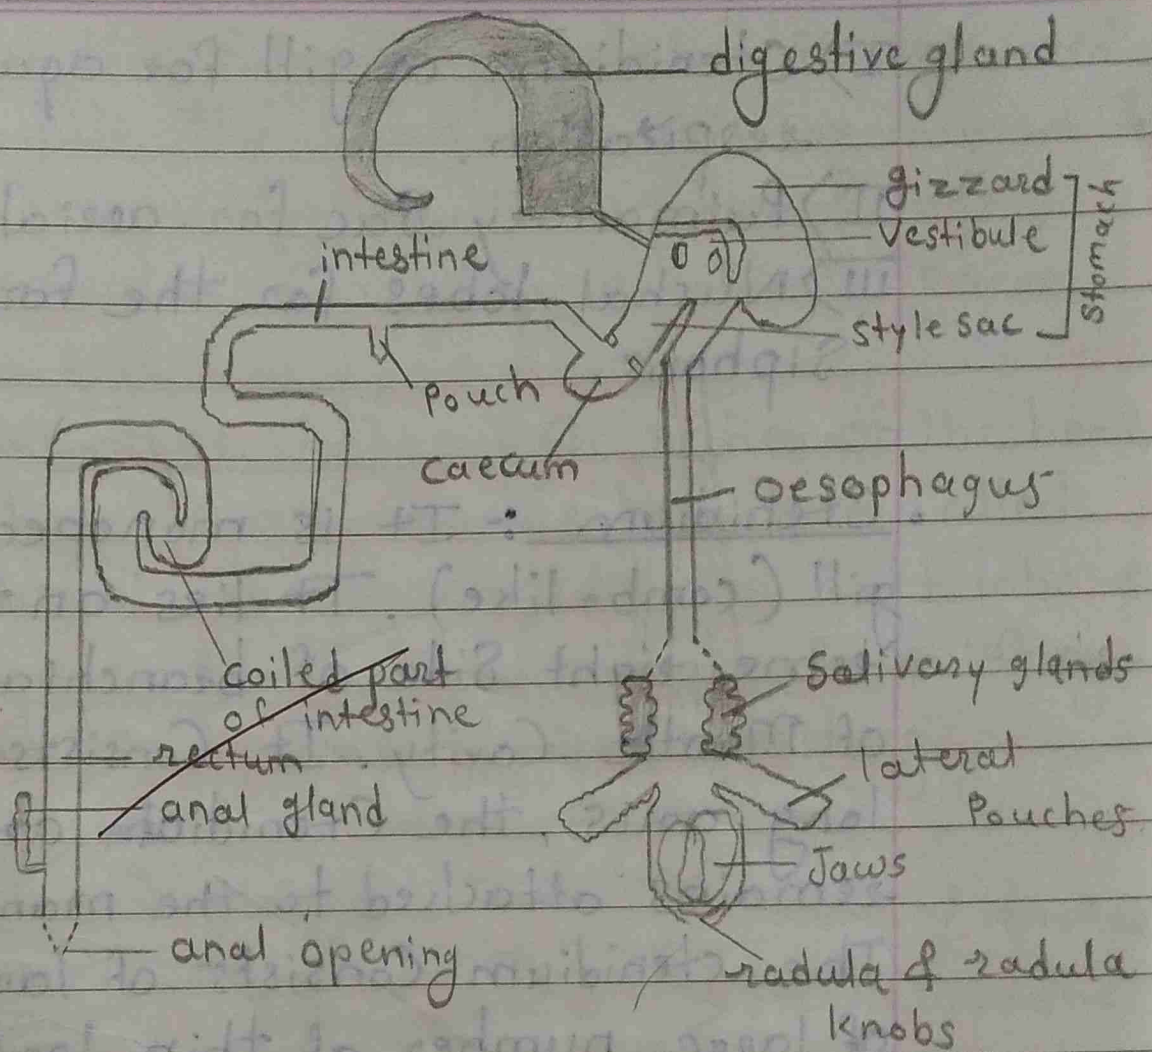 digestive gland
gizzard
Vestibule
style sac
Stomach
intestine
Pouch
caecum
oesophagus
coiled part
of intestine
rectum
anal gland
Salivary glands
lateral
Pouches
Jaws
anal opening
radula & radula
knobs